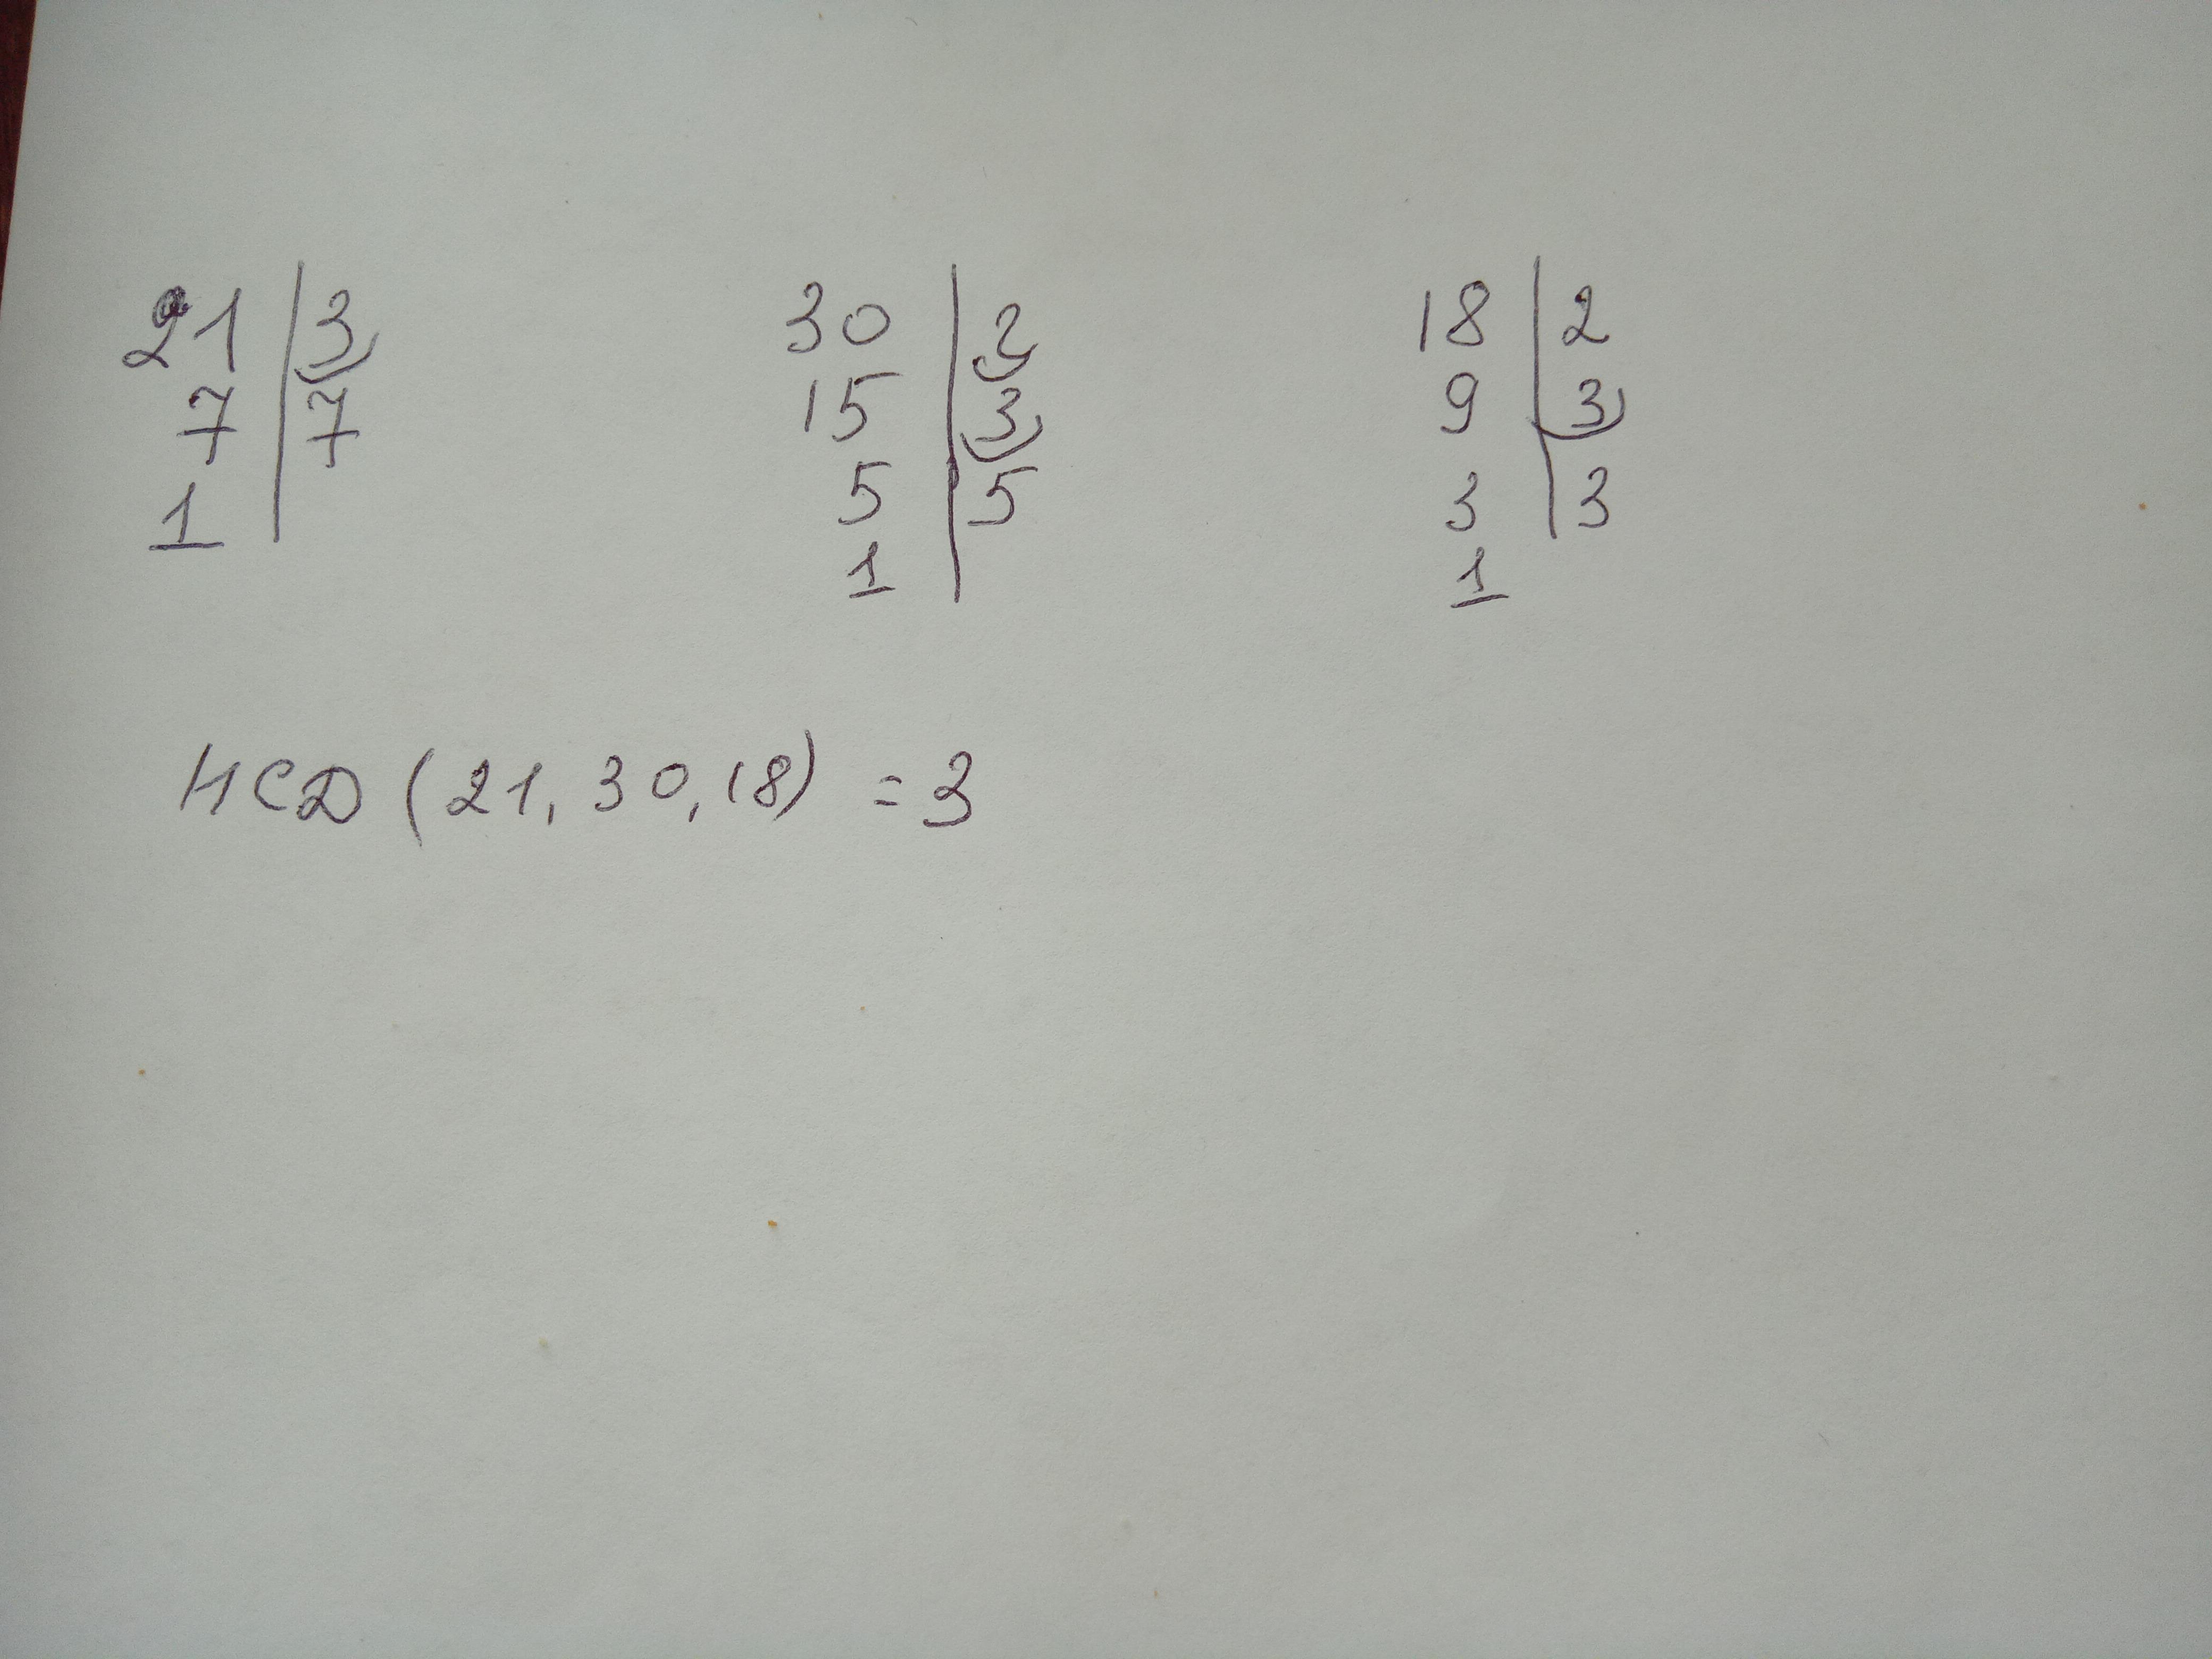 21 | 3
7 | 7
1
30 | 2
15 | 3
5 | 5
1
18 | 2
9 | 3
3 | 3
1
НСД (21, 30, 18) = 3